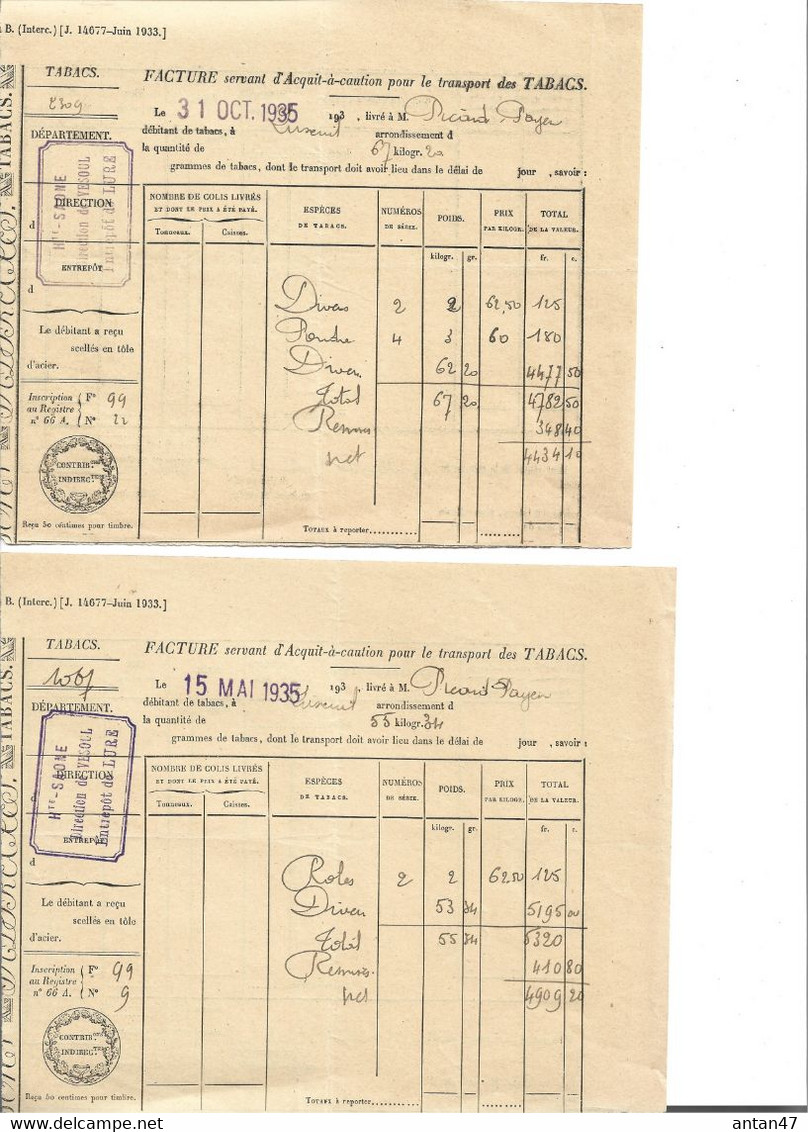 B. (Interc.) [J. 14677-Juin 1933.]
TABACS.
FACTURE servant d'Acquit-à-caution pour le transport des TABACS.
2309
Le 31 OCT. 1935 193 , livré à M. Picard-Payen
DÉPARTEMENT.
débitant de tabacs, à Luxeuil arrondissement d
la quantité de 67 kilogr. 20
grammes de tabacs, dont le transport doit avoir lieu dans le délai de jour , savoir :
Hte-SAONE
Direction de VESOUL
Entrepôt de LURE
DIRECTION
d
ENTREPÔT
d
NOMBRE DE COLIS LIVRÉS
ET DONT LE PRIX A ÉTÉ PAYÉ.
Tonneaux. Caisses.
ESPÈCES
DE TABACS.
NUMÉROS
DE SÉRIE.
POIDS.
PRIX
PAR KILOGR.
TOTAL
DE LA VALEUR.
kilogr. gr. fr. c.
Divers 2 2 62,50 125
Poudre 4 3 60 180
Divers 62 20 4477 50
Total 67 20 4782 50
Remises 348 40
net 4434 10
Le débitant a reçu
scellés en tôle
d'acier.
Inscription au Registre n° 66 A. F° 99
N° 22
CONTRIB.ONS
INDIREC.TES
Reçu 50 centimes pour timbre.
TOTAUX à reporter...........
TABACS.
B. (Interc.) [J. 14677-Juin 1933.]
TABACS.
FACTURE servant d'Acquit-à-caution pour le transport des TABACS.
Le 15 MAI 1935 193 , livré à M. Picard-Payen
DÉPARTEMENT.
débitant de tabacs, à Luxeuil arrondissement d
la quantité de 55 kilogr. 34
grammes de tabacs, dont le transport doit avoir lieu dans le délai de jour , savoir :
Hte-SAONE
Direction de VESOUL
Entrepôt de LURE
DIRECTION
ENTREPÔT
d
NOMBRE DE COLIS LIVRÉS
ET DONT LE PRIX A ÉTÉ PAYÉ.
Tonneaux. Caisses.
ESPÈCES
DE TABACS.
NUMÉROS
DE SÉRIE.
POIDS.
PRIX
PAR KILOGR.
TOTAL
DE LA VALEUR.
kilogr. gr. fr. c.
Roles 2 2 62 50 125
Divers 53 34 5195 00
Total 55 34 5320
Remises 410 80
net 4909 20
Le débitant a reçu
scellés en tôle
d'acier.
Inscription au Registre n° 66 A. F° 99
N° 9
CONTRIB.ONS
INDIREC.TES
Reçu 50 centimes pour timbre.
TOTAUX à reporter...........
TABACS.
antan47